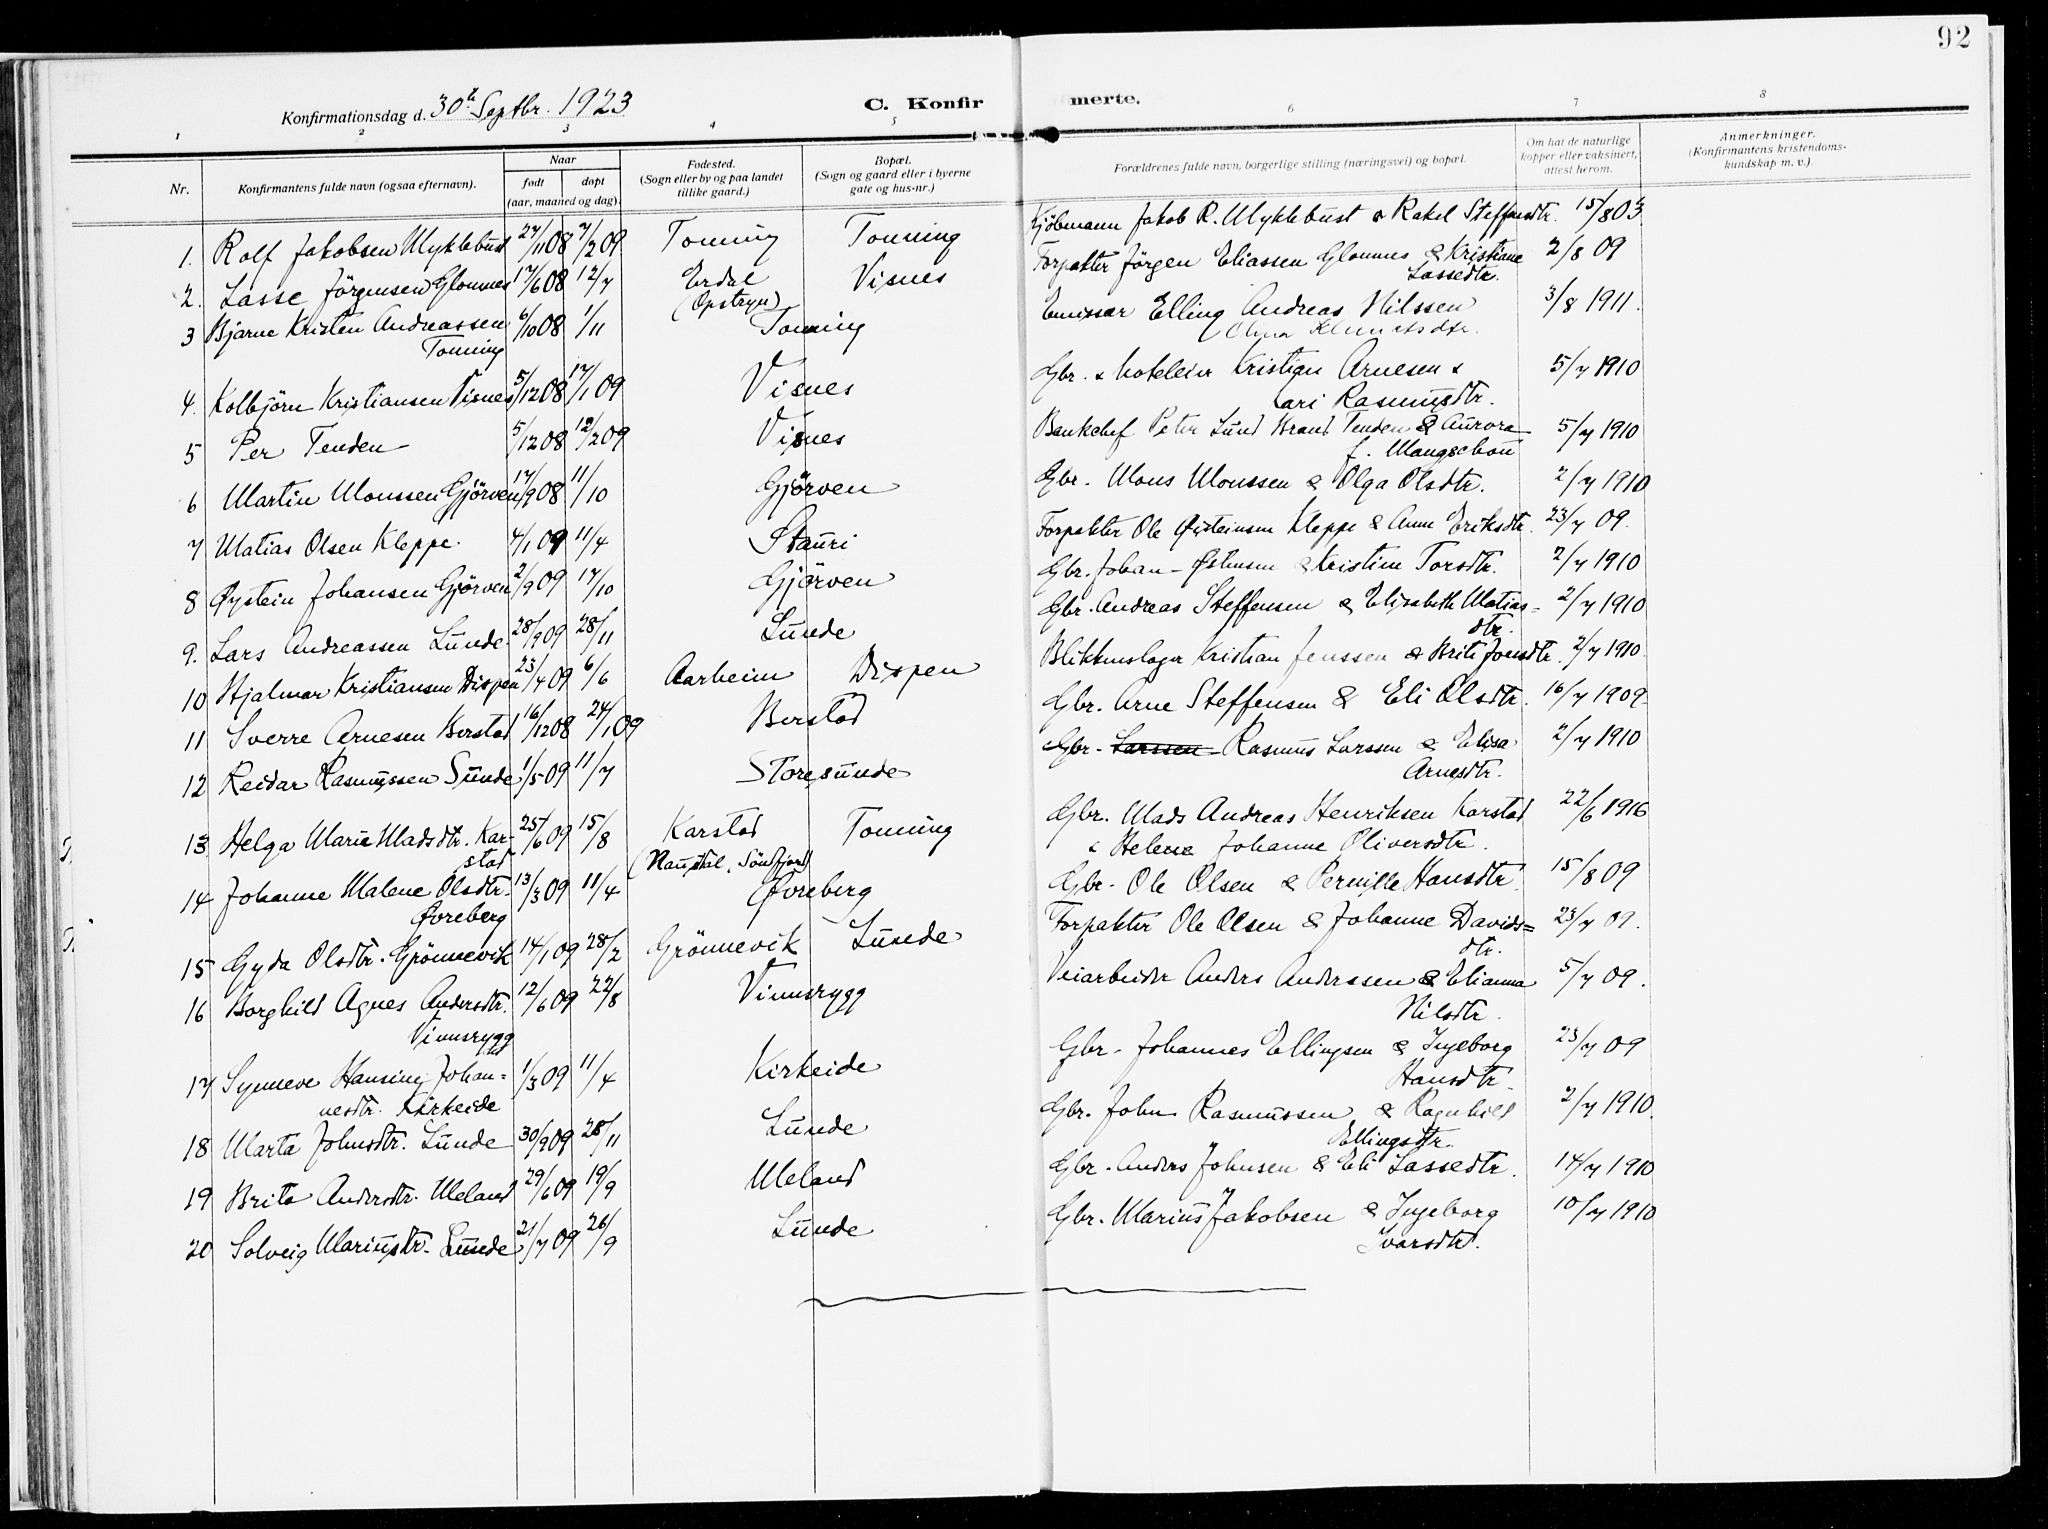 92
Konfirmationsdag d. 30te Septbr. 1923
C. Konfirmerte.
1 2 3 4 5 6 7 8
Nr.
Konfirmantens fulde navn (ogsaa efternavn).
Naar
født
døpt
(aar, maaned og dag).
Fødested.
(Sogn eller by og paa landet
tillike gaard.)
Bopæl.
(Sogn og gaard eller i byerne
gate og hus-nr.)
Forældrenes fulde navn, borgerlige stilling (næringsvei) og bopæl.
Om hat de naturlige
kopper eller vaksinert,
attest herom.
Anmerkninger.
(Konfirmantens kristendoms-
kundskap m. v.).
1. Rolf Jakobsen Myklebust 27/11 08 7/2 09. Tonning Tonning Kjöbmann Jakob R. Myklebust & Rakel Steffensdtr. 15/8 03
2. Lasse Jörgensen Glomnes 17/6 08 12/7 Erdal Visnes Forpakter Jörgen Eliassen Glomnes & Kristiane 2/8 09
(Opstryn) Lassedtr.
3 Bjarne Kristen Andreassen 6/10 08 1/11 Tonning Emissær Elling Andreas Nilssen 3/8 1911.
Tonning
4. Kolbjörn Kristiansen Visnes 5/12 08 17/1 09 Visnes Gbr. & hoteleier Kristian Arnesen & 5/7 1910
Kari Rasmusdtr.
5 Per Tenden 5/12 08 12/2 09 Visnes Bankchef Peter Lund Krans Tenden & Aurora 5/7 1910
f. Mangschou
6 Martin Monssen Gjörven 17/9 08 11/10 Gjörven Gbr. Mons Monssen & Olga Olsdtr. 2/7 1910
7 Matias Olsen Kleppe. 4/1 09 11/4 Stauri Forpakter Ole Øisteinsen Kleppe & Anne Eriksdtr. 23/7 09.
8 Øystein Johansen Gjörven 2/9 09 17/10 Gjörven Gbr. Johan Östensen & Kristine Torsdtr. 2/7 1910
9. Lars Andreassen Lunde. 28/9 09 28/11 Lunde Gbr. Andreas Steffensen & Elisabeth Matias= 2/7 1910
dtr.
10 Hjalmar Kristiansen Dispen 23/4 09 6/6 Aarheim Dispen Blikkenslager Kristian Jenssen & Brite Jonsdtr. 2/7 1910.
11 Sverre Arnesen Berstad 16/12 08 24/1 09 Berstad Gbr. Arne Steffensen & Eli Olsdtr. 16/7 1909
12 Reidar Rasmussen Sunde 1/5 09 11/7 Storesunde Gbr. Larssen Rasmus Larssen & Elisa 2/7 1910
Arnesdtr.
13 Helga Marie Madsdtr. Kar- 25/6 09 15/8 Karstad Tonning Gbr. Mads Andreas Henriksen Karstad 22/6 1916
stad (Naustdal, Søndfjord) & Helene Johanne Oliversdtr.
14 Johanne Malene Olsdtr. 13/3 09 11/4 Øvreberg Gbr. Ole Olsen & Pernille Hansdtr. 15/8 09
Øvreberg
15 Gyda Olsdtr. Grönnevik 14/1 09 28/2 Grönnevik Lunde Forpakter Ole Olsen & Johanne Davids= 23/7 09.
dtr.
16 Borghild Agnes Andersdtr. 12/6 09 22/8 Vinnsrygg Veiarbeider Anders Anderssen & Elianna 5/7 09.
Vinnsrygg Nilsdtr.
17 Synneve Hansine Johan= 1/3 09 11/4 Kirkeide Gbr. Johannes Ellingsen & Ingeborg 23/7 09
nesdtr. Kirkeide Hansdtr.
18 Marta Johnsdtr. Lunde 30/9 09 28/11 Lunde Gbr. John Rasmussen & Ragnhild 2/7 1910.
Ellingsdtr.
19 Brita Andersdtr. Meland 29/6 09 19/9 Meland Gbr. Anders Johnsen & Eli Lassedtr. 14/7 1910
20 Solveig Mariusdtr. Lunde 21/7 09 26/9 Lunde Gbr. Marius Jakobsen & Ingeborg 10/7 1910
Ivarsdtr.